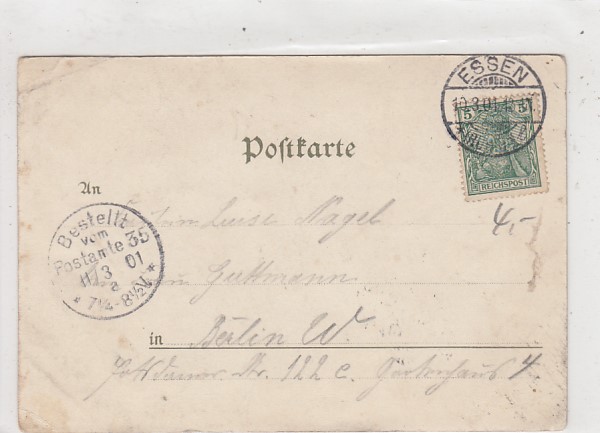 ESSEN
10.3.01
5 5
REICHSPOST
Postkarte
An
Luise Nagel
4,-
Bestellt
vom
Postamte 35
11/3 01
a
* 7¼-8½V *
Guttmann
in Berlin W.
Potsdamer Str. 122 c. Gartenhaus 4